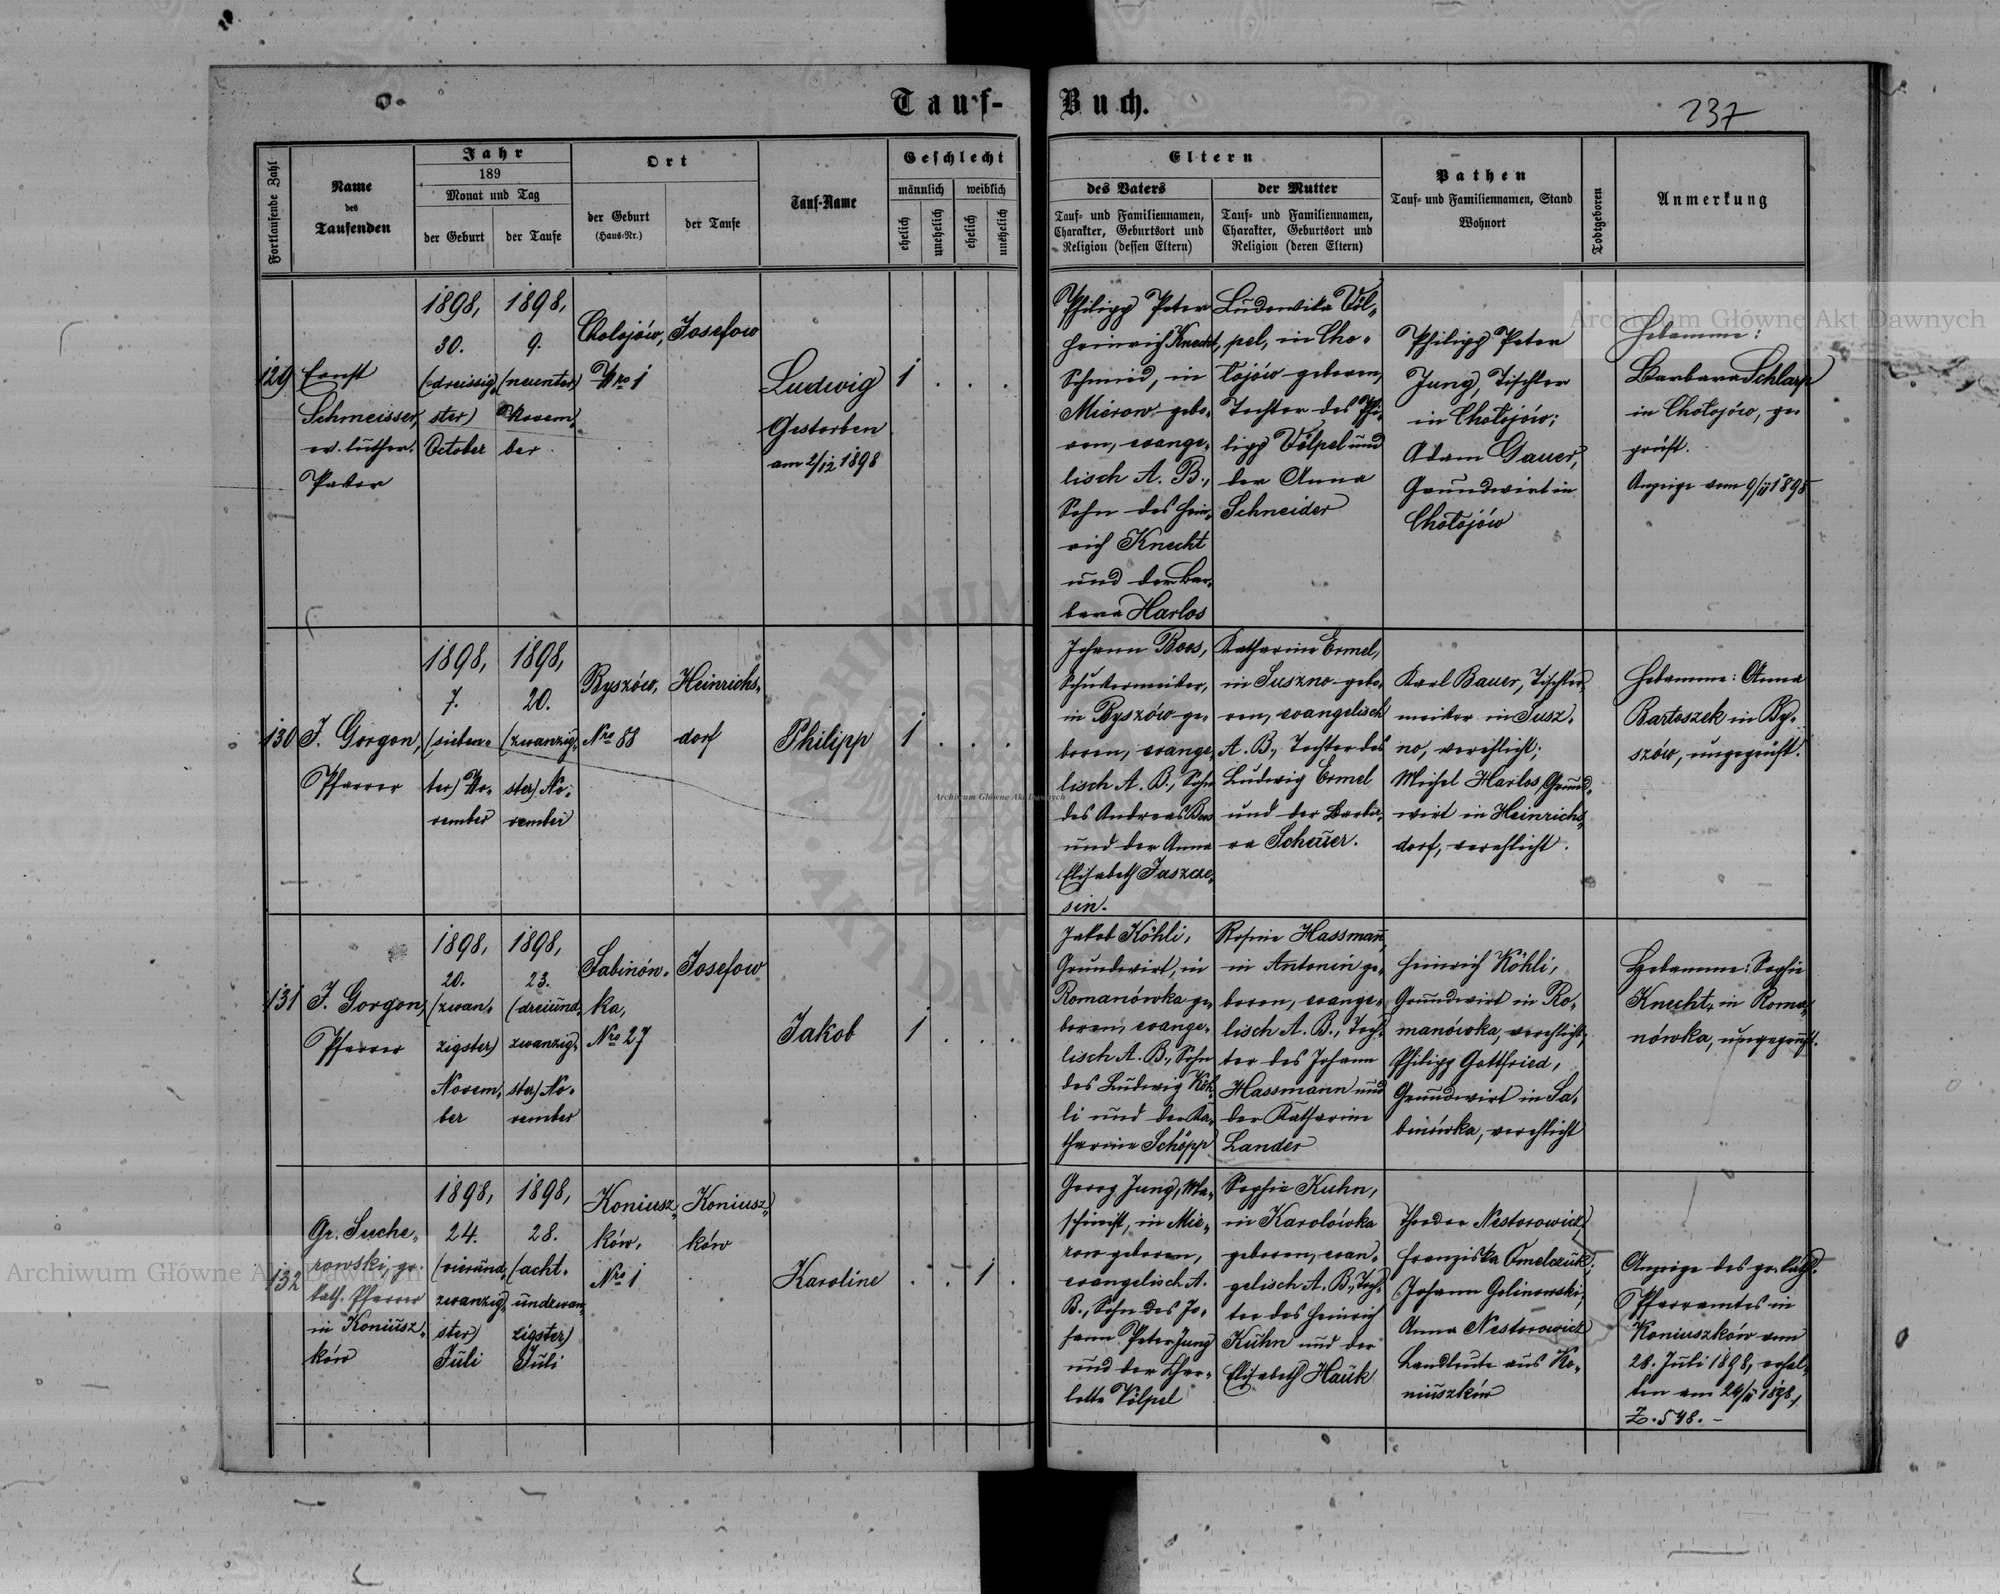 Tauf-Buch.
237
Fortlaufende Zahl
Name
des
Taufenden
Jahr
189
Monat und Tag
der Geburt
der Taufe
Ort
der Geburt
(Haus-Nr.)
der Taufe
Tauf-Name
Geschlecht
männlich
weiblich
ehelich
unehelich
ehelich
unehelich
Eltern
des Vaters
Tauf- und Familiennamen,
Charakter, Geburtsort und
Religion (dessen Eltern)
der Mutter
Tauf- und Familiennamen,
Charakter, Geburtsort und
Religion (deren Eltern)
Pathen
Tauf- und Familiennamen, Stand
Wohnort
Todtgeboren
Anmerkung
129
Ernst
Schmeisser,
ev. luther.
Pastor
1898,
30.
(dreissig,
ster)
October
1898,
9.
(neunter)
Novem,
ber
Cholojów,
Nro 1
Josefow
Ludwig
Gestorben
am 2/12 1898
1 . . .
Philipp Peter
Heinrich Knecht,
Schmied, in
Mierow gebo,
ren, evange,
lisch A. B.,
Sohn des Hein,
rich Knecht
und der Bar,
bara Harlos
Ludowika Völ,
pel, in Cho,
lojów geboren,
Tochter des Phi,
lipp Völpel und
der Anna
Schneider
Philipp Peter
Jung, Tischler
in Chołojów;
Adam Gauer,
Grundwirt in
Chołojów
Hebamme:
Barbara Schlarp
in Chołojów, ge,
prüft.
Anzeige vom 9/11 1898
130
J. Gorgon,
Pfarrer
1898,
7.
(sieben,
ter) No,
vember
1898,
20.
(zwanzig,
ster) No,
vember
Byszów,
Nro 88
Heinrichs,
dorf
Philipp
1 . . .
Johann Boos,
Schustermeister,
in Byszów ge,
boren, evange,
lisch A. B., Sohn
des Andreas Boos
und der Anna
Elisabeth Jaszcze,
sin.
Katharine Ermel,
in Suszno gebo,
ren, evangelisch
A. B., Tochter des
Ludwig Ermel
und der Barba,
ra Scheuer.
Karl Bauer, Tischler,
meister in Susz,
no, verehlicht;
Michel Harlos, Grund,
wirt in Heinrichs,
dorf, verehlicht.
Hebamme: Anna
Bartoszek in By,
szów, ungeprüft.
131
J. Gorgon,
Pfarrer
1898,
20.
(zwan,
zigster)
Novem,
ber
1898,
23.
(dreiund,
zwanzig,
ster) No,
vember
Sabinów,
ka,
Nro 27
Josefow
Jakob
1 . . .
Jakob Köhli,
Grundwirt, in
Romanówka ge,
boren, evange,
lisch A. B., Sohn
des Ludwig Köh,
li und der Ka,
tharine Schöpp
Rosine Hassmann,
in Antonin ge,
boren, evange,
lisch A. B., Toch,
ter des Johann
Hassmann und
der Katharine
Lander
Heinrich Köhli,
Grundwirt in Ro,
manówka, verehlicht;
Philipp Gottfried,
Grundwirt in Sa,
binówka, verehlicht
Hebamme: Sophie
Knecht, in Roma,
nówka, ungeprüft.
132
Gr. Suche,
rowski, gr.
kath. Pfarrer
in Koniusz,
ków
1898,
24.
(vierund,
zwanzig,
ster)
Juli
1898,
28.
(acht,
undzwan,
zigster)
Juli
Koniusz,
ków,
Nro 1
Koniusz,
ków
Karoline
. . 1 .
Georg Jung, Ma,
schinist, in Mie,
row geboren,
evangelisch A.
B., Sohn des Jo,
hann Peter Jung
und der Char,
lotte Völpel
Sophie Kuhn,
in Karolówka
geboren, evan,
gelisch A. B., Toch,
ter des Heinrich
Kuhn und der
Elisabeth Hauk
Theodor Nestorowicz,
Franziska Omelczuk;
Johann Golinowski,
Anna Nestorowicz
Landleute aus Ko,
niuszków
Anzeige des gr. kath.
Pfarramtes in
Koniuszków vom
28. Juli 1898, erhal,
ten am 29/11 1898,
Z. 548. –
Archiwum Główne Akt Dawnych
Archiwum Główne Akt Dawnych
Archiwum Główne Akt Dawnych